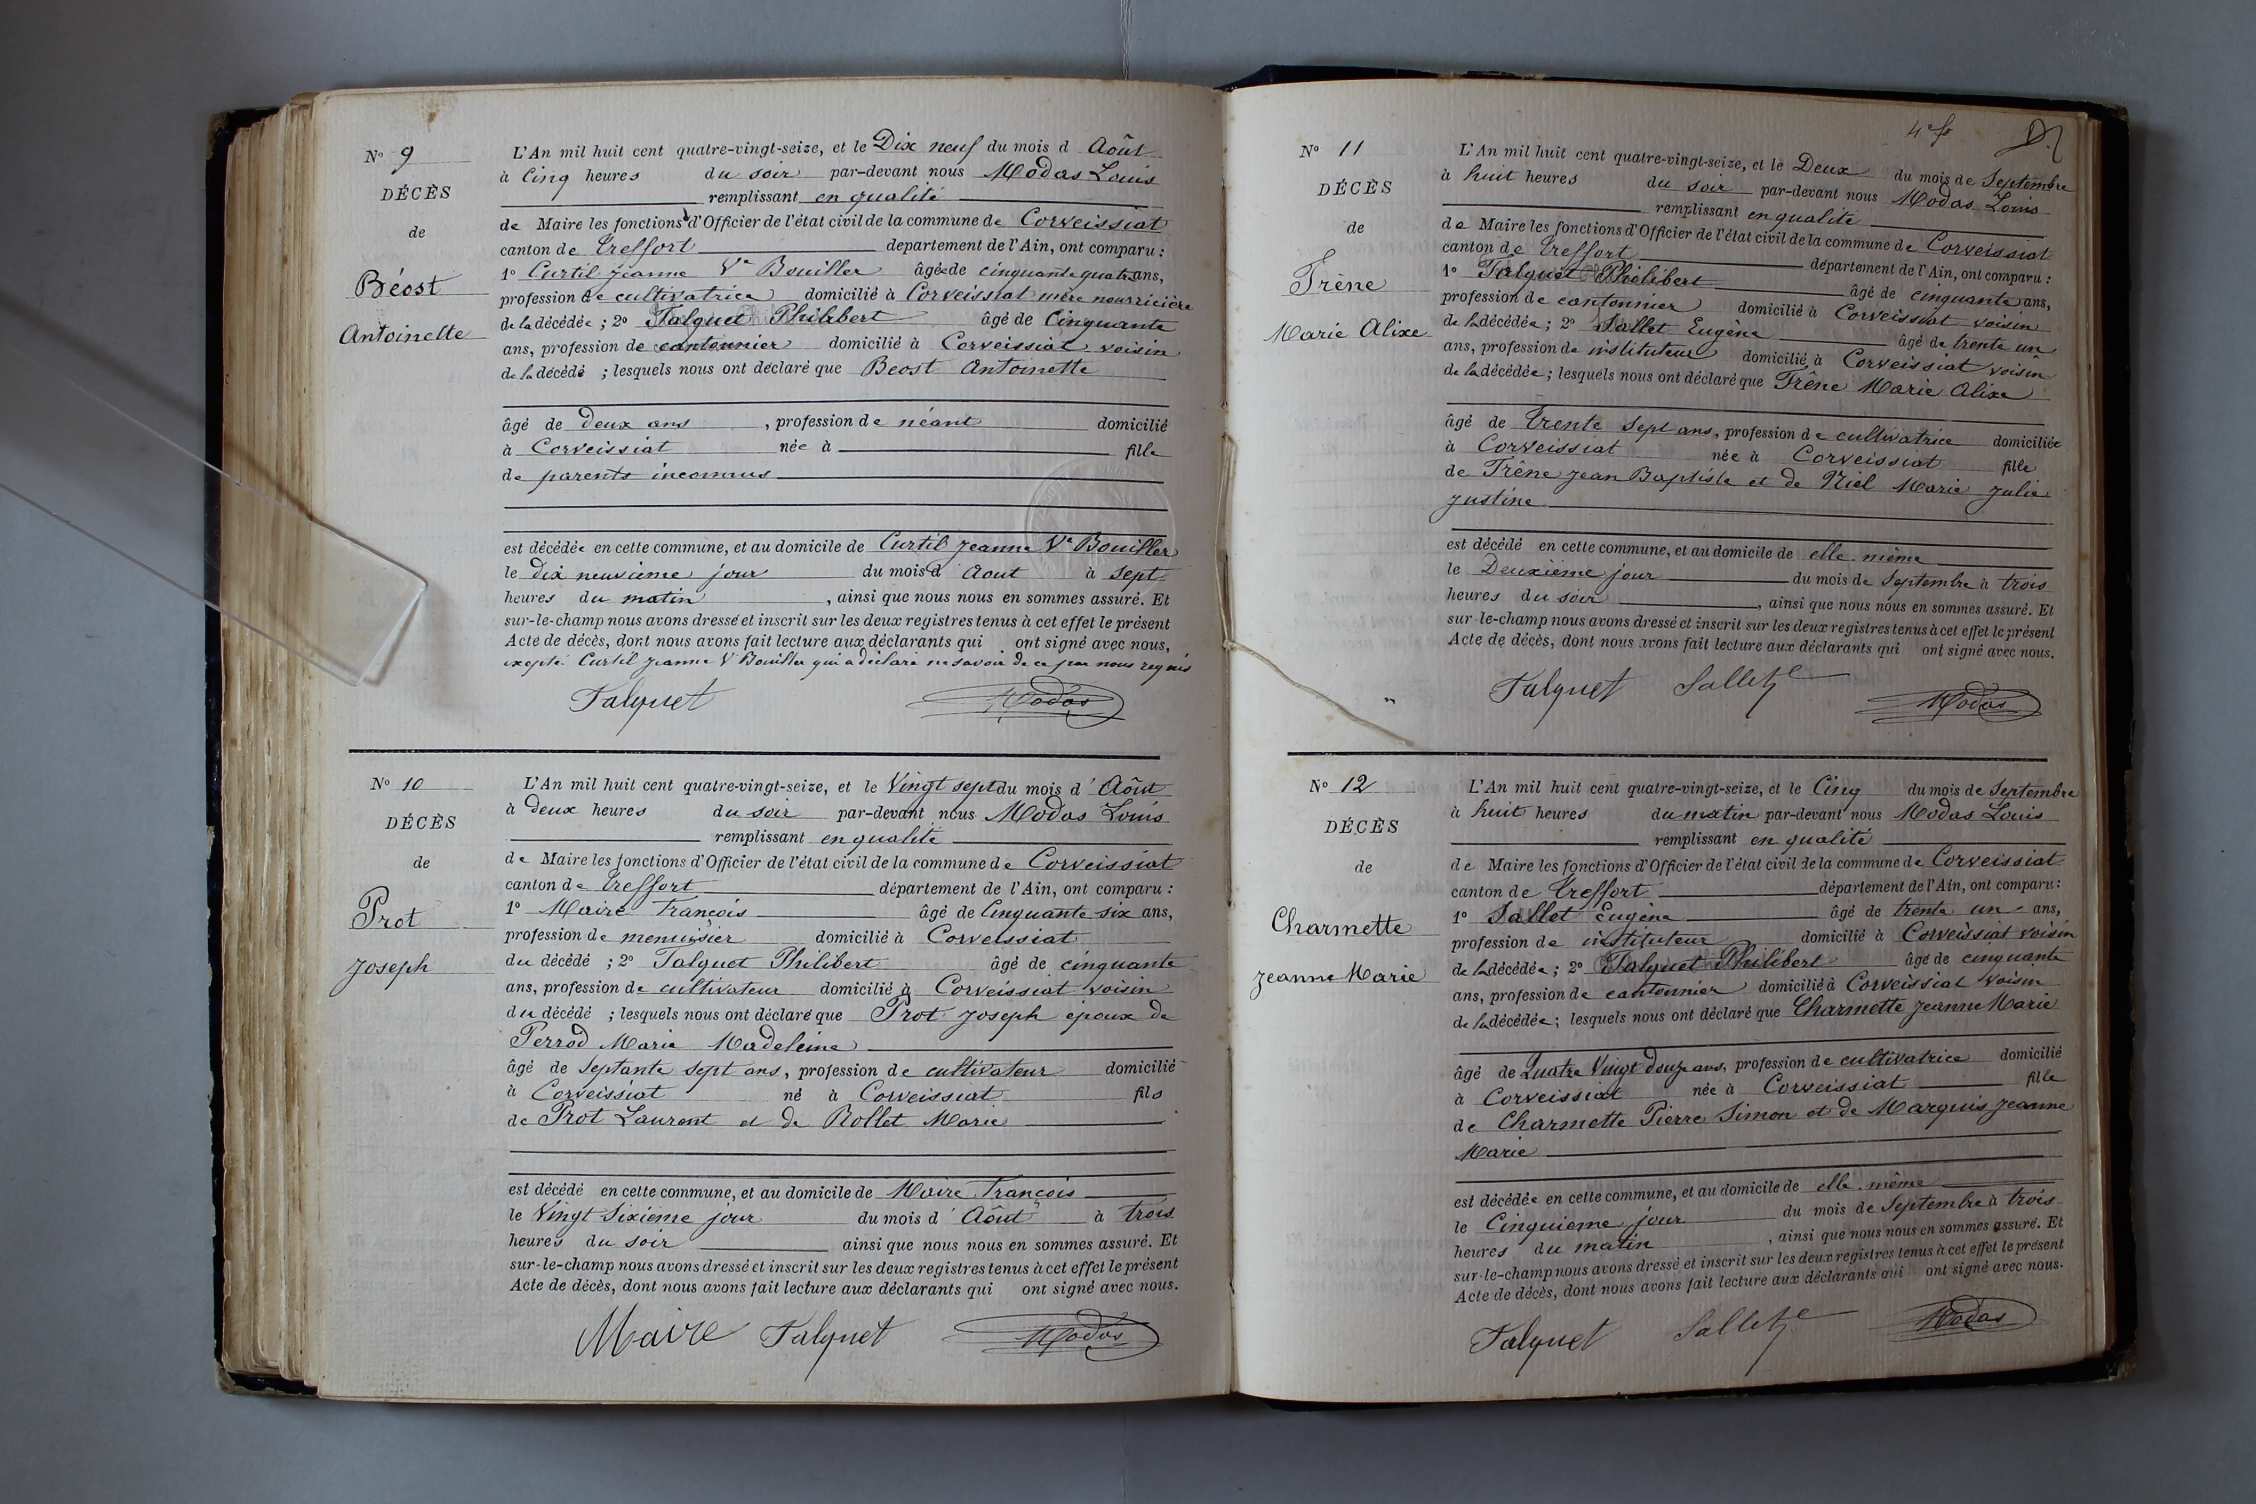 Nº 9
DÉCÈS
de
Béost
Antoinette
L'An mil huit cent quatre-vingt-seize, et le Dix neuf du mois d Août
à Cinq heures du soir par-devant nous Modas Louis
remplissant en qualité
de Maire les fonctions d'Officier de l'état civil de la commune de Corveissiat
canton de Treffort département de l'Ain, ont comparu :
1º Curtil Jeanne Vᵉ Bouiller âgée de cinquante quatre ans,
profession de cultivatrice domicilié à Corveissiat mère nourricière
de la décédée ; 2º Falquet Philibert âgé de Cinquante
ans, profession de cantonnier domicilié à Corveissiat voisin
de la décédé ; lesquels nous ont déclaré que Beost Antoinette
âgé de deux ans , profession de néant domicilié
à Corveissiat née à fille
de parents inconnus
est décédée en cette commune, et au domicile de Curtil Jeanne Vᵉ Bouiller
le dix neuvième jour du mois d Aout à sept
heures du matin , ainsi que nous nous en sommes assuré. Et
sur-le-champ nous avons dressé et inscrit sur les deux registres tenus à cet effet le présent
Acte de décès, dont nous avons fait lecture aux déclarants qui ont signé avec nous,
excepté Curtil Jeanne Vᵉ Bouiller qui a déclaré ne savoir de ce par nous requis
Falquet Modas
Nº 10
DÉCÈS
de
Prot
Joseph
L'An mil huit cent quatre-vingt-seize, et le Vingt sept du mois d' Août
à deux heures du soir par-devant nous Modas Louis
remplissant en qualité
de Maire les fonctions d'Officier de l'état civil de la commune de Corveissiat
canton de Treffort département de l'Ain, ont comparu :
1º Maire François âgé de Cinquante six ans,
profession de menuisier domicilié à Corveissiat
du décédé ; 2º Falquet Philibert âgé de cinquante
ans, profession de cultivateur domicilié à Corveissiat voisin
du décédé ; lesquels nous ont déclaré que Prot Joseph époux de
Perrod Marie Madeleine
âgé de septante sept ans, profession de cultivateur domicilié
à Corveissiat né à Corveissiat fils
de Prot Laurent et de Rollet Marie
est décédé en cette commune, et au domicile de Maire François
le Vingt Sixième jour du mois d' Août à trois
heures du soir ainsi que nous nous en sommes assuré. Et
sur-le-champ nous avons dressé et inscrit sur les deux registres tenus à cet effet le présent
Acte de décès, dont nous avons fait lecture aux déclarants qui ont signé avec nous.
Maire Falquet Modas
Nº 11
DÉCÈS
de
Frêne
Marie Alixe
L'An mil huit cent quatre-vingt-seize, et le Deux du mois de Septembre
à huit heures du soir par-devant nous Modas Louis
remplissant en qualité
de Maire les fonctions d'Officier de l'état civil de la commune de Corveissiat
canton de Treffort département de l'Ain, ont comparu :
1º Falquet Philibert âgé de cinquante ans,
profession de cantonnier domicilié à Corveissiat voisin
de la décédée ; 2º Sallet Eugène âgé de trente un
ans, profession de instituteur domicilié à Corveissiat voisin
de la décédée ; lesquels nous ont déclaré que Frêne Marie Alixe
âgé de Trente sept ans, profession de cultivatrice domiciliée
à Corveissiat née à Corveissiat fille
de Frêne Jean Baptiste et de Niel Marie Julie
Justine
est décédé en cette commune, et au domicile de elle même
le Deuxième jour du mois de Septembre à trois
heures du soir , ainsi que nous nous en sommes assuré. Et
sur-le-champ nous avons dressé et inscrit sur les deux registres tenus à cet effet le présent
Acte de décès, dont nous avons fait lecture aux déclarants qui ont signé avec nous.
Falquet Sallet Modas
Nº 12
DÉCÈS
de
Charmette
Jeanne Marie
L'An mil huit cent quatre-vingt-seize, et le Cinq du mois de Septembre
à huit heures du matin par-devant nous Modas Louis
remplissant en qualité
de Maire les fonctions d'Officier de l'état civil de la commune de Corveissiat
canton de Treffort département de l'Ain, ont comparu :
1º Sallet Eugène âgé de trente un ans,
profession de instituteur domicilié à Corveissiat voisin
de la décédée ; 2º Falquet Philibert âgé de cinquante
ans, profession de cantonnier domicilié à Corveissiat voisin
de la décédée ; lesquels nous ont déclaré que Charmette Jeanne Marie
âgé de Quatre Vingt douze ans, profession de cultivatrice domicilié
à Corveissiat née à Corveissiat fille
de Charmette Pierre Simon et de Marquis Jeanne
Marie
est décédée en cette commune, et au domicile de elle même
le Cinquieme jour du mois de Septembre à trois
heures du matin , ainsi que nous nous en sommes assuré. Et
sur-le-champ nous avons dressé et inscrit sur les deux registres tenus à cet effet le présent
Acte de décès, dont nous avons fait lecture aux déclarants qui ont signé avec nous.
Falquet Sallet Modas